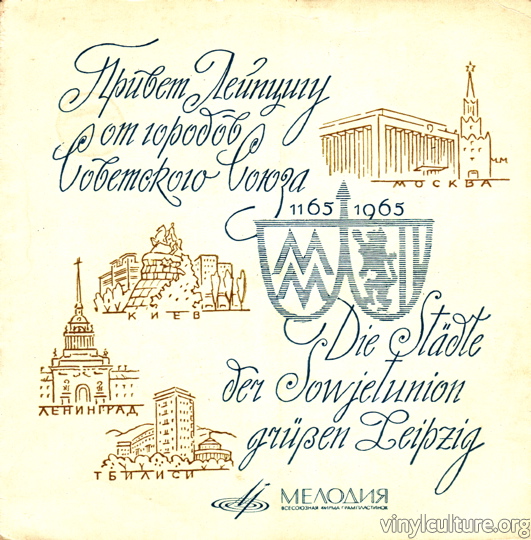 Привет Лейпцигу
от городов
Советского Союза
МОСКВА
1165 1965
КИЕВ
ЛЕНИНГРАД
ТБИЛИСИ
Die Städte
der Sowjetunion
grüßen Leipzig
МЕЛОДИЯ
ВСЕСОЮЗНАЯ ФИРМА ГРАМПЛАСТИНОК
vinylculture.org